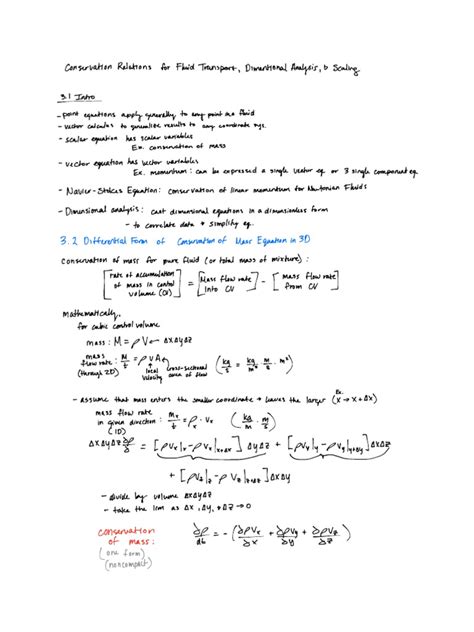 Conservation Relations for Fluid Transport, Dimentional Analysis, & Scaling
3.1 Intro
- point equations apply generally to any point in a fluid
- vector calculus to generalize results to any coordinate sys.
- scalar equation has scalar variables
Ex. conservation of mass
- vector equation has vector variables
Ex. momentum: can be expressed a single vector eq or 3 single component eq
- Navier-Stokes Equation: conservation of linear momentum for Newtonian Fluids
- Dimensional analysis: cast dimensional equations in a dimensionless form
- to correlate data & simplify eq.
3.2 Differential Form of Conservation of Mass Equation in 3D
conservation of mass for pure fluid (or total mass of mixture):
[rate of accumulation of mass in control volume (CV)] = [Mass flow rate into CV] - [Mass flow rate from CV]
mathematically,
for cubic control volume
mass: M = ρV ← ΔxΔyΔz
mass flow rate: (through 2D) M/t = ρvA ← cross-sectional area of flow (kg/s = kg/m³ · m/s · m²)
local velocity
- assume that mass enters the smaller coordinate & leaves the larger (Ex. x → x + Δx)
mass flow rate in given direction: (1D) Mx/t = ρ · Vx (kg/m³ · m/s)
ΔxΔyΔz ∂ρ/∂t = [ρVx|x - ρVx|x+Δx] ΔyΔz + [ρVy|y - ρVy|y+Δy] ΔxΔz
+ [ρVz|z - ρVz|z+Δz] ΔxΔy
- divide by volume ΔxΔyΔz
- take the lim as Δx, Δy, Δz → 0
conservation of mass: ∂ρ/∂t = -(∂ρVx/∂x + ∂ρVy/∂y + ∂ρVz/∂z)
(one form)
(noncompact)